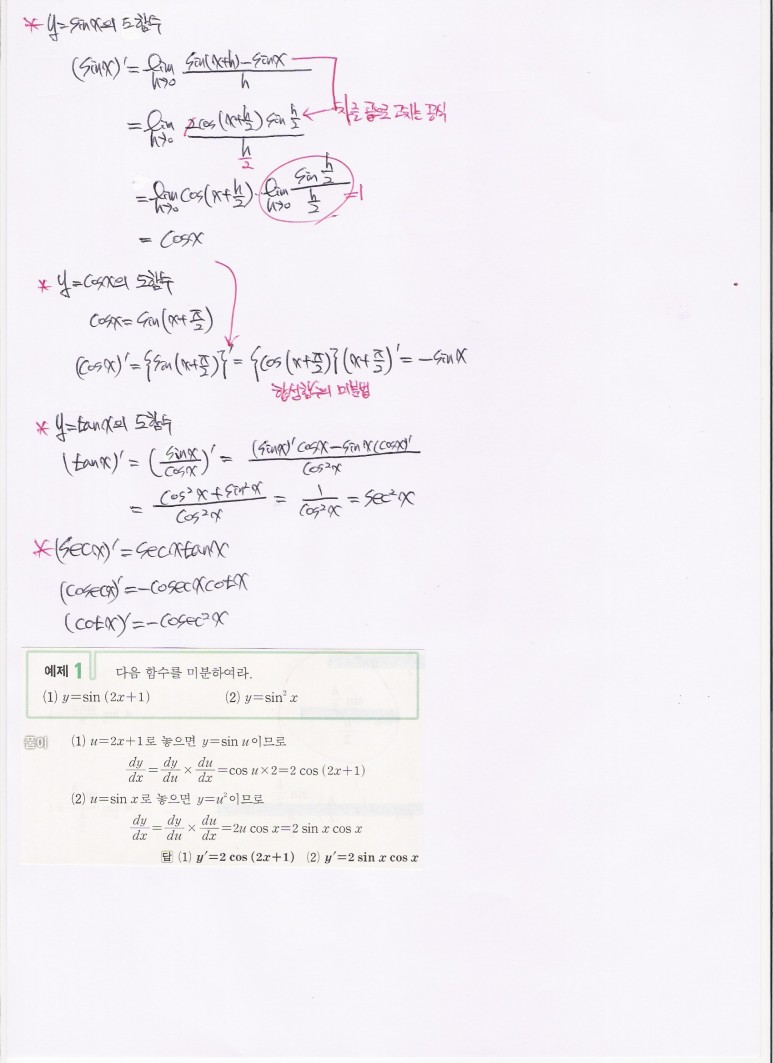 * y=sinx의 도함수
(sinx)'=lim h→0 sin(x+h)-sinx / h
차를 곱으로 고치는 공식
=lim h→0 2cos(x+h/2)sin h/2 / h/2
=lim h→0 cos(x+h/2)·lim h→0 sin h/2 / h/2 =1
= cosx
* y=cosx의 도함수
cosx=sin(x+π/2)
(cosx)'={sin(x+π/2)}'={cos(x+π/2)}(x+π/2)'=-sinx
합성함수의 미분법
* y=tanx의 도함수
(tanx)'=(sinx/cosx)'= (sinx)'cosx-sinx(cosx)' / cos²x
= cos²x+sin²x / cos²x = 1/cos²x = sec²x
*(secx)'=secxtanx
(cosecx)'=-cosecxcotx
(cotx)'=-cosec²x
예제 1 다음 함수를 미분하여라.
(1) y=sin (2x+1) (2) y=sin² x
풀이 (1) u=2x+1로 놓으면 y=sin u이므로
dy/dx=dy/du×du/dx=cos u×2=2 cos (2x+1)
(2) u=sin x로 놓으면 y=u²이므로
dy/dx=dy/du×du/dx=2u cos x=2 sin x cos x
답 (1) y'=2 cos (2x+1) (2) y'=2 sin x cos x